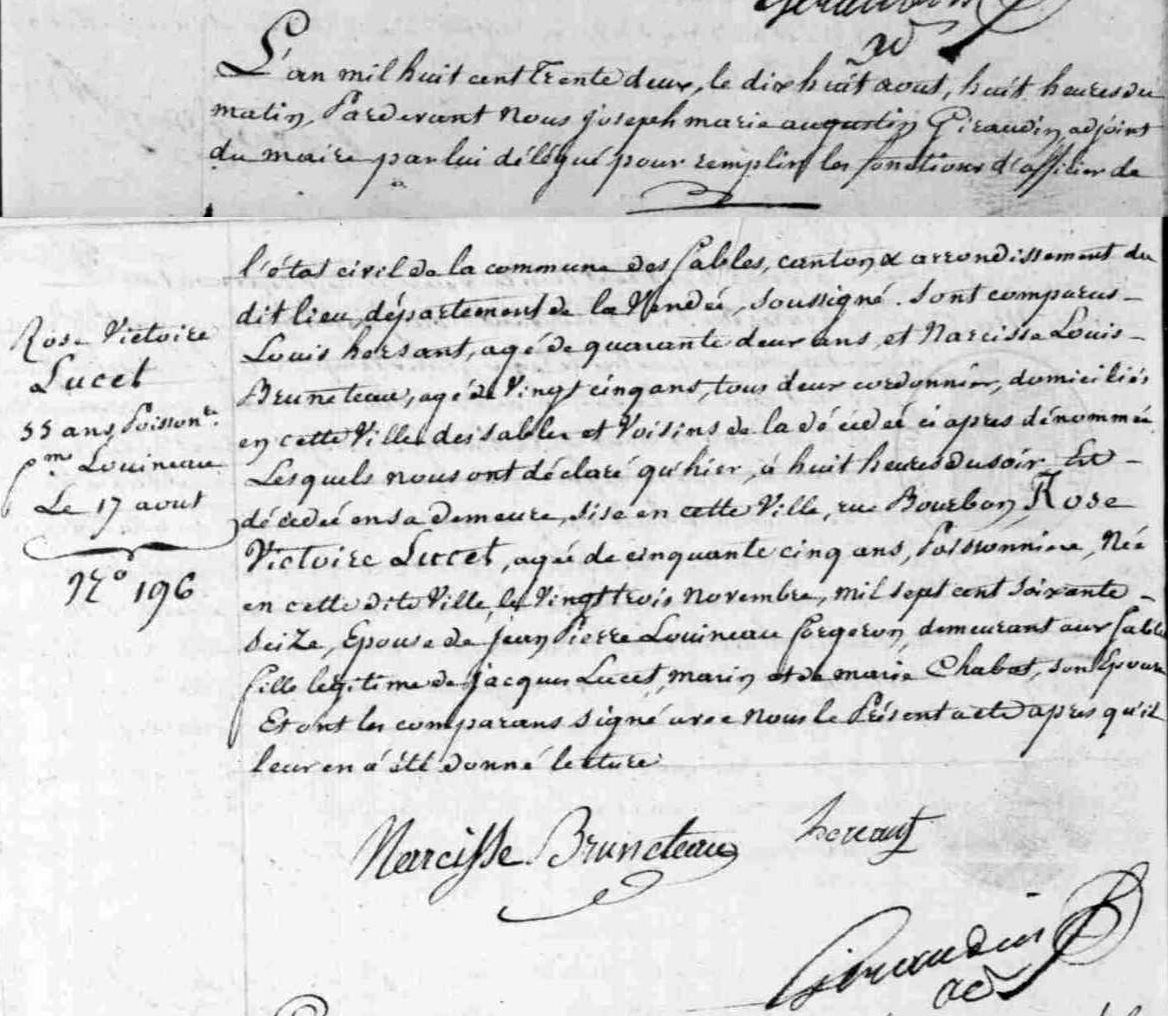 Giraudin
ad
L'an mil huit cent Trente deux, le dix huit aout, huit heures du
matin, Pardevant Nous joseph marie augustin Giraudin adjoint
du maire par lui délégué pour remplir les fonctions d'officier de
l'état civil de la commune des Sables, canton & arrondissement du
dit lieu, département de la Vendée, soussigné. sont comparus
Louis hersant, agé de quarante deux ans, et Narcisse Louis
Bruneteau, agé de Vingt cinq ans, tous deux cordonnier, domiciliés
en cette Ville des sables et Voisins de la décédée ci apres dénommée
Lesquels nous ont déclaré qu'hier, à huit heures du soir Est
décédée en sa demeure, sise en cette Ville, rue Bourbon, Rose
Victoire Lucet, agée de cinquante cinq ans, Poissonnière, Née
en cette dite Ville, le Vingt trois Novembre, mil sept cent soixante
seize, Epouse de jean Pierre Louineau forgeron, demeurant aux sables
fille legitime de jacques Lucet, marin et de marie Chabot, son Epouse
Et ont les comparans signé avec Nous le Présent acte apres qu'il
leur en a été donné lecture
Rose Victoire
Lucet
55 ans, Poissonre
fme Louineau
Le 17 aout
N° 196
Narcisse Bruneteau hersant
Giraudin
ad